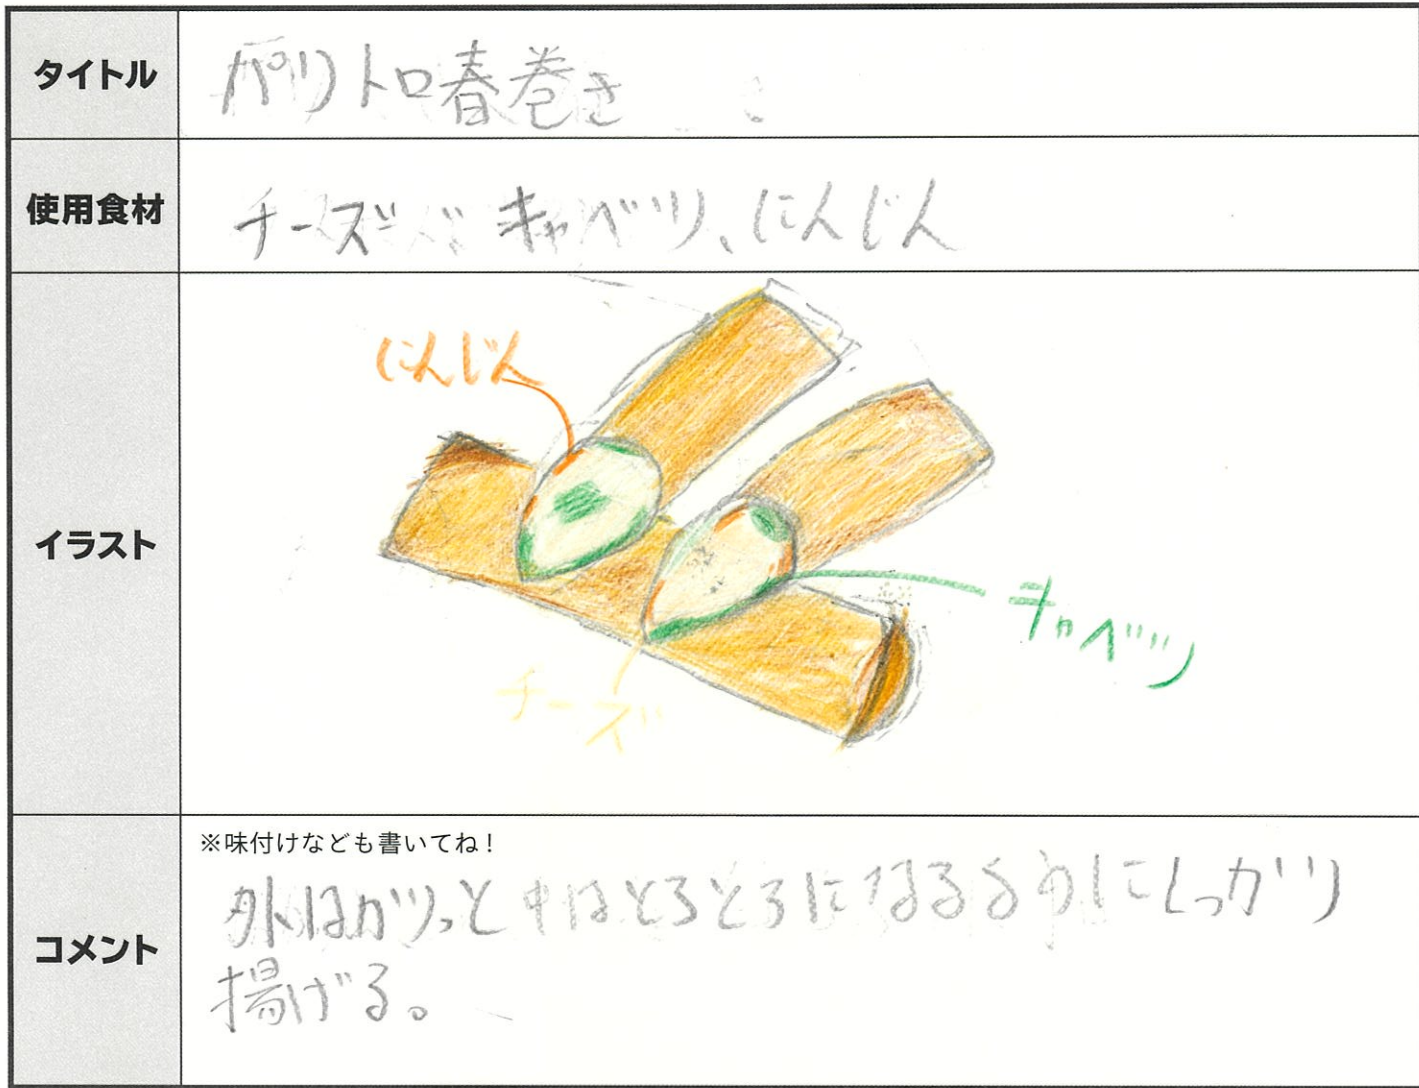 タイトル
パリトロ春巻き
使用食材
チーズ キャベツ、にんじん
イラスト
にんじん
キャベツ
チーズ
コメント
※味付けなども書いてね！
外はガリっと中はとろとろになるようにしっかり
揚げる。